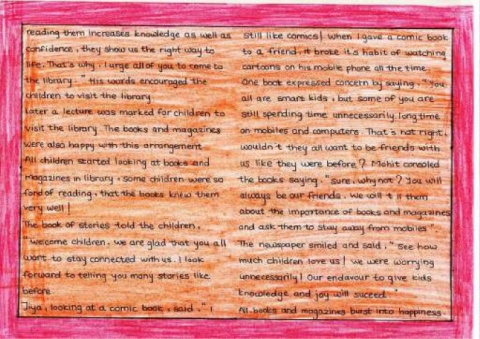 reading them increases knowledge as well as
confidence, they show us the right way to
life. That's why, I urge all of you to come to
the library." His words encouraged the
children to visit the library
Later a lecture was marked for children to
visit the library. The books and magazines
were also happy with this arrangement
All children started looking at books and
magazines in library. Some children were so
fond of reading, that the books knew them
very well!
The book of stories told the children,
"welcome children, we are glad that you all
want to stay connected with us. I look
forward to telling you many stories like
before
Jiya, looking at a comic book, said, "I
still like comics! when I gave a comic book
to a friend, it broke its habit of watching
cartoons on his mobile phone all the time.
One book expressed concern by saying, "You
all are smart kids, but some of you are
still spending time unnecessarily long time
on mobiles and computers. That's not right,
wouldn't they all want to be friends with
us like they were before? Mohit consoled
the books saying, "sure, why not? You will
always be our friends. We will tell them
about the importance of books and magazines
and ask them to stay away from mobiles".
The newspaper smiled and said, "See how
much children love us! we were worrying
unnecessarily! Our endavour to give kids
knowledge and joy will suceed."
All books and magazines burst into happiness.